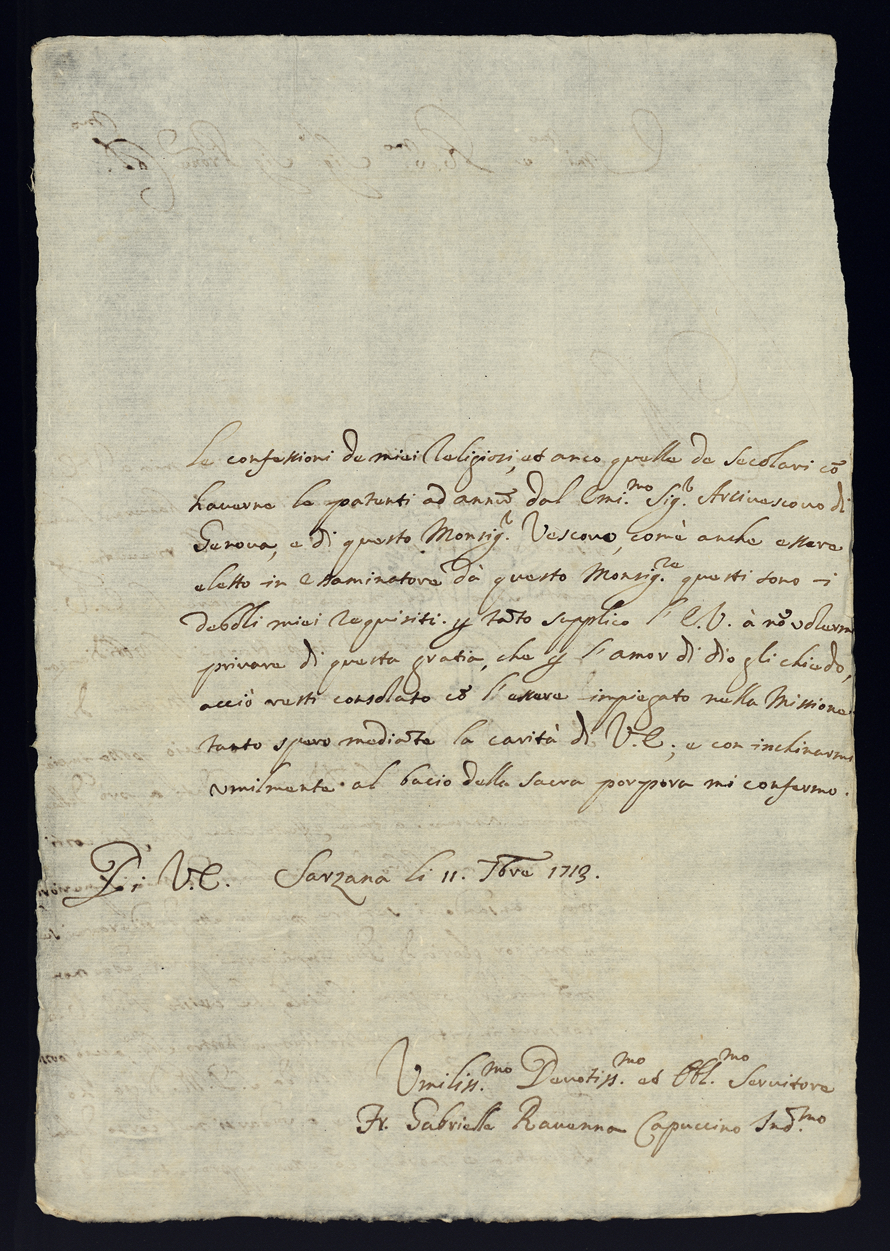 le confessioni de miei Religiosi, et anco quelle de secolari cō
haverne le patenti ad annū dal Emi.mo Sig.r Arcivescovo di
Genova, e di questo Monsig.r Vescovo, com'è anche essere
eletto in Esaminatore dà questo Monsig.re questi sono i
deboli miei requisiti. p tāto supplico l'E.V. à nō volermi
privare di questa gratia, che p l'amor di dio gli chiedo,
acciò resti consolato cō l'essere impiegato nella Missione
tanto spero mediāte la carità di V.E.; e con inchinarmi
umilmente al bacio della sacra porpora mi confermo.
Di V.E. Sarzana li 11. 7bre 1713.
Umiliss.mo Devotiss.mo et Obl.mo Servitore
Fr. Gabrielle Ravenna Capuccino Ind.mo